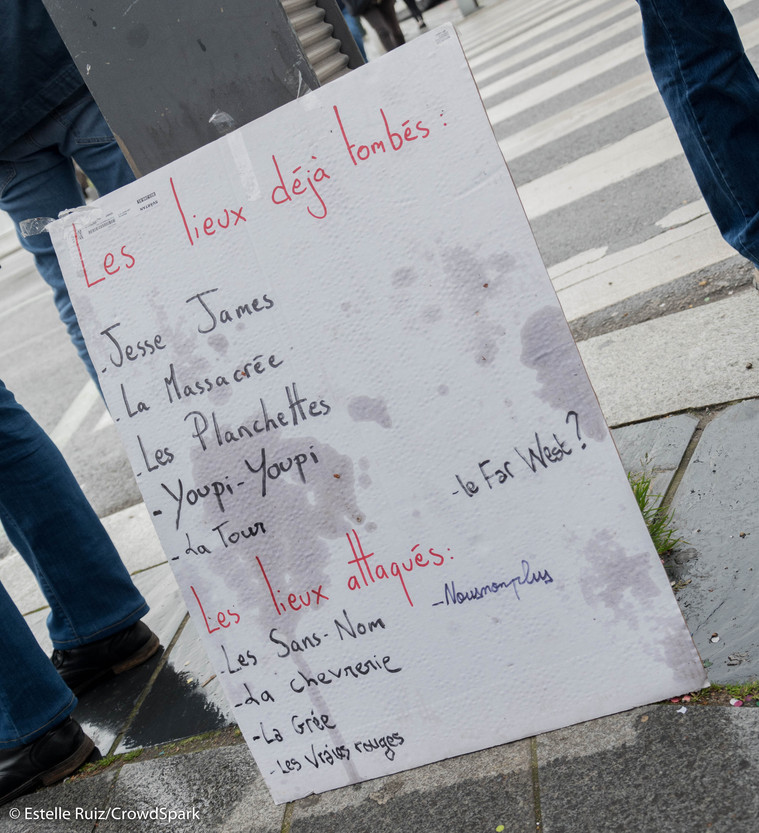 Les lieux déjà tombés :
- Jesse James
- La Massacrée
- Les Planchettes
- Youpi-Youpi
- La Tour
- le Far West ?
Les lieux attaqués :
- Nousnonplus
- Les Sans-Nom
- La chevrerie
- La Grée
- Les Vraies rouges
© Estelle Ruiz/CrowdSpark